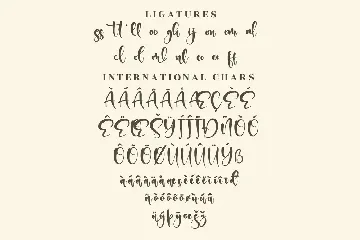 LIGATURES
ss tt ll oo gh ij on om nl
cl el ml nl co ca ff
INTERNATIONAL CHARS
ÀÁÂÃÄÅÆÇÈÉ
ÊËŒŠŸÎÏÐÑÒÓ
ÔÕÖØÙÚÛÜÝß
àáâãäåæçèéêëìíîïđ
ñòóôõöøùúû
üýþÿœšž